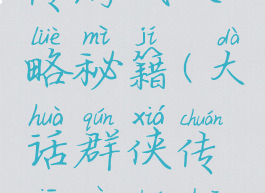 lüè mì jí dà
略秘籍(大
huà qún xiá chuán
话群侠传